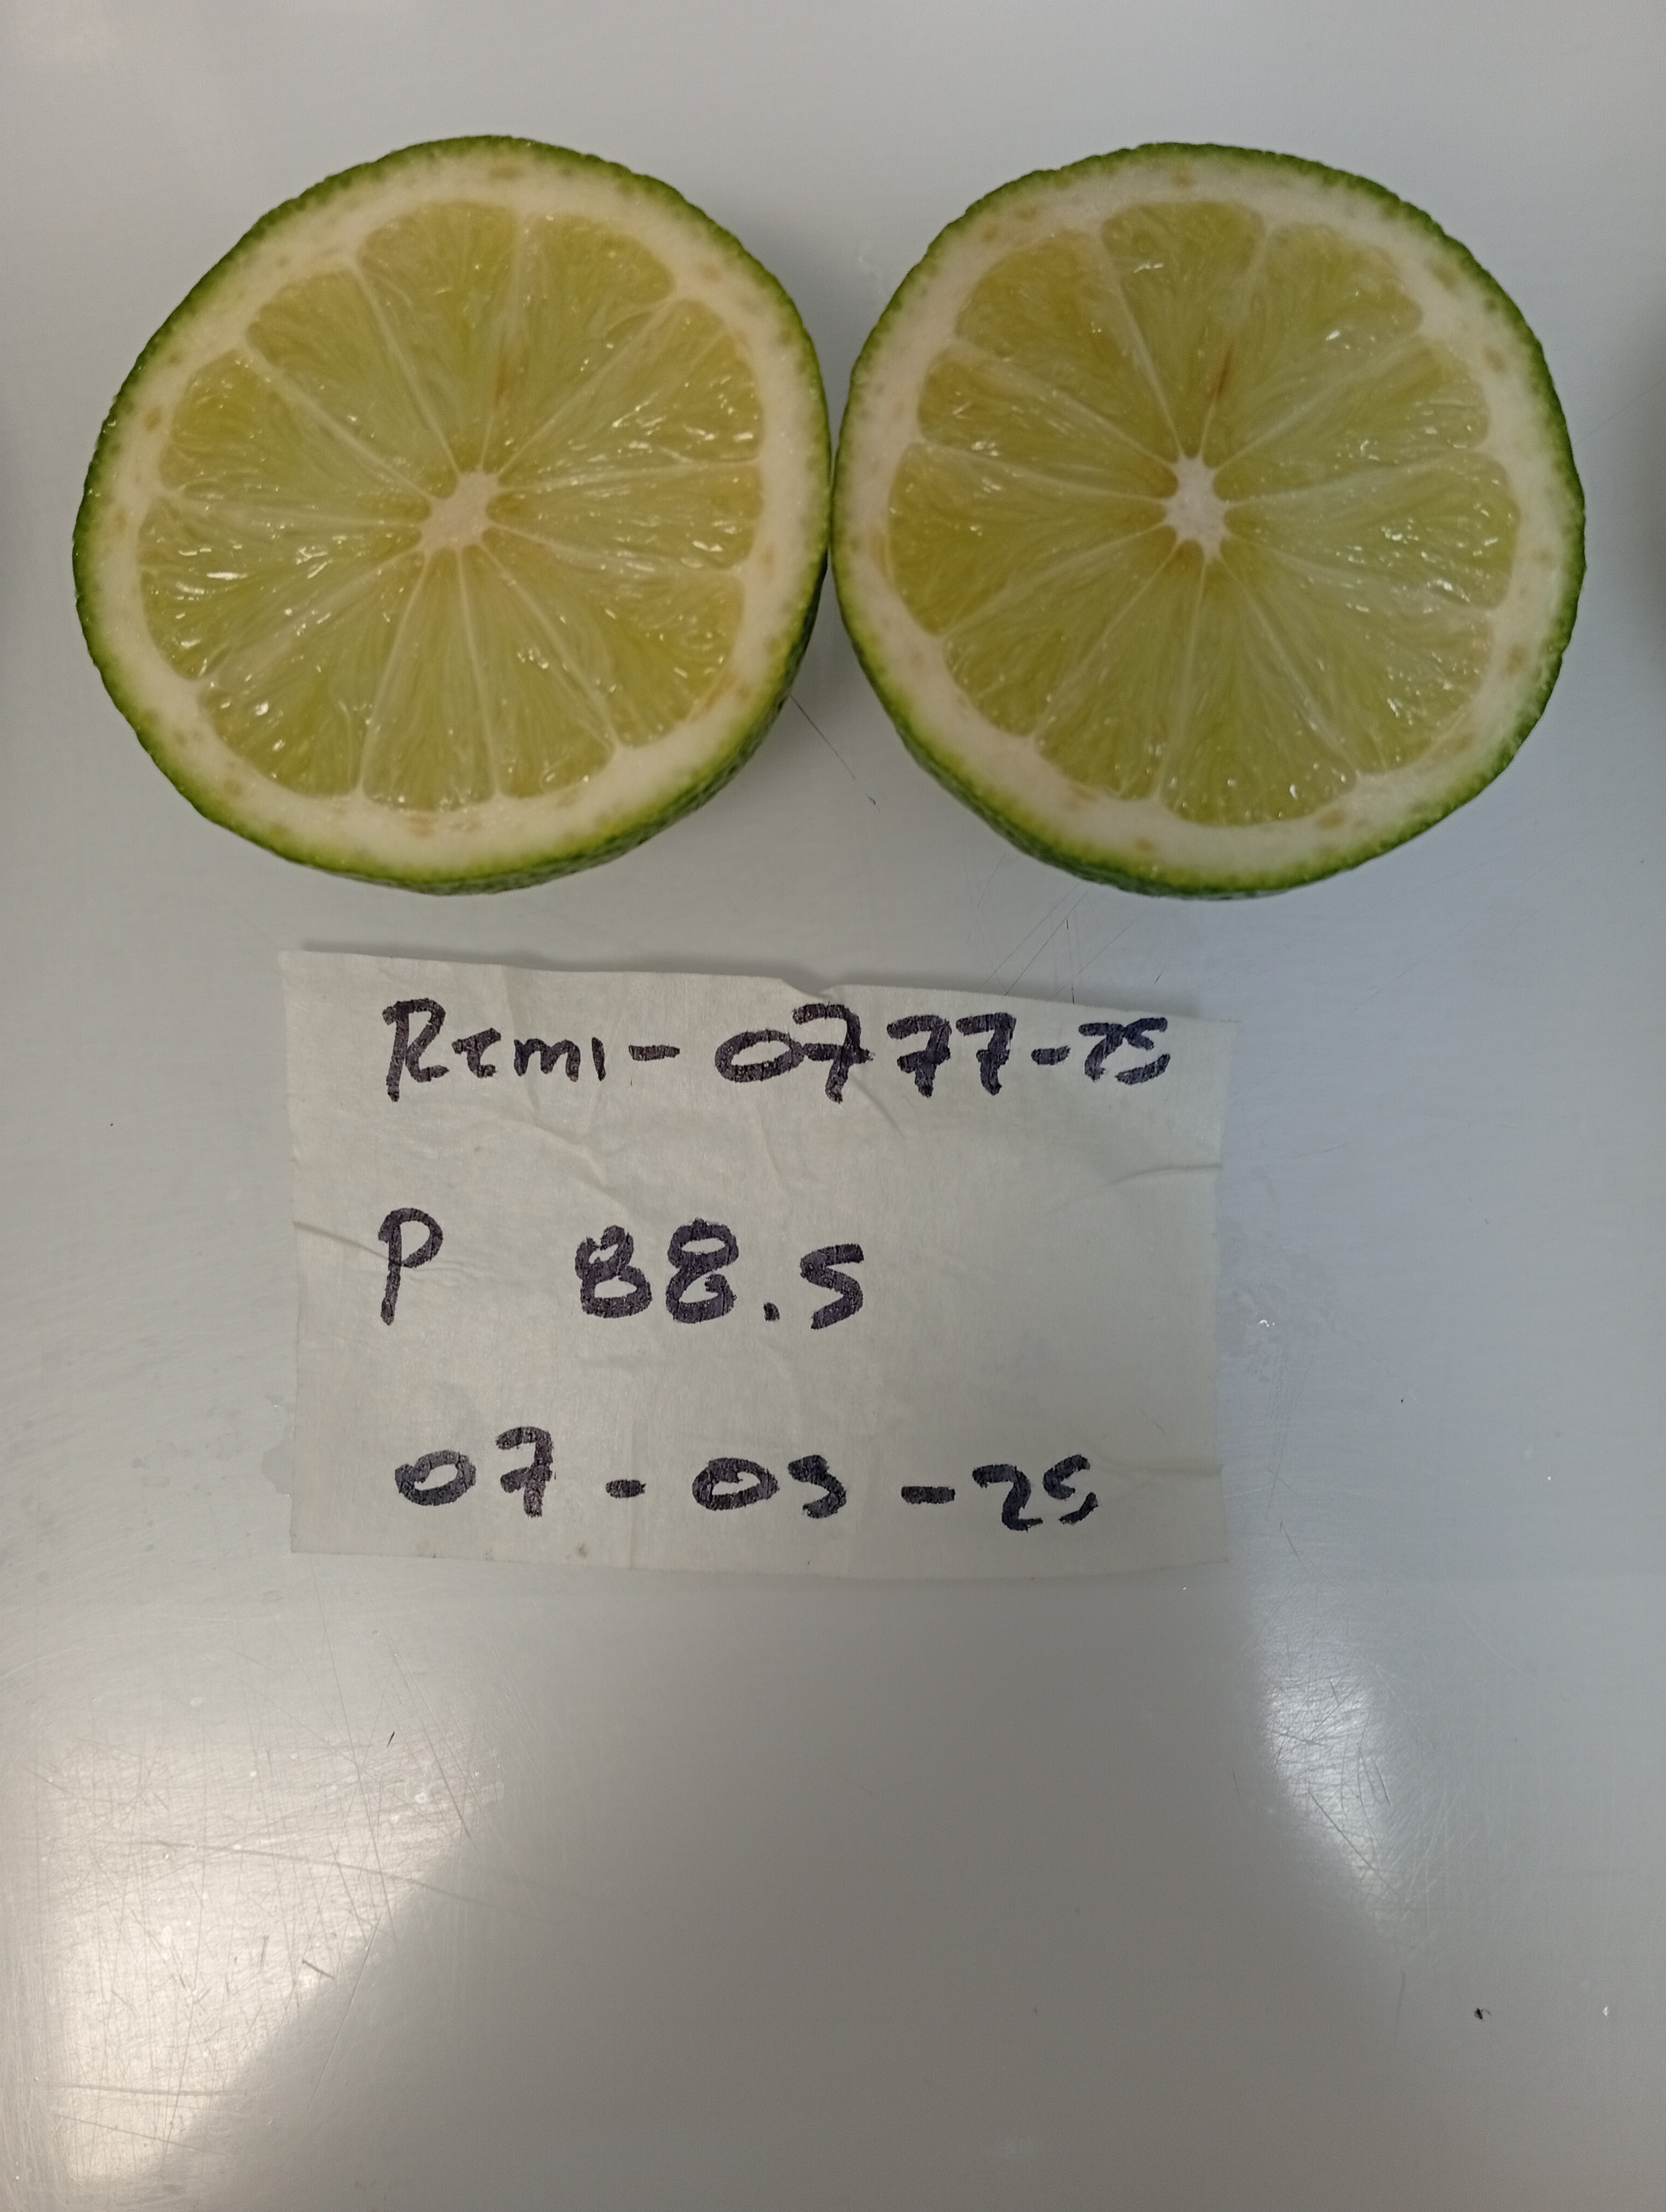 Remi-0777-25
P 88.5
07-03-25